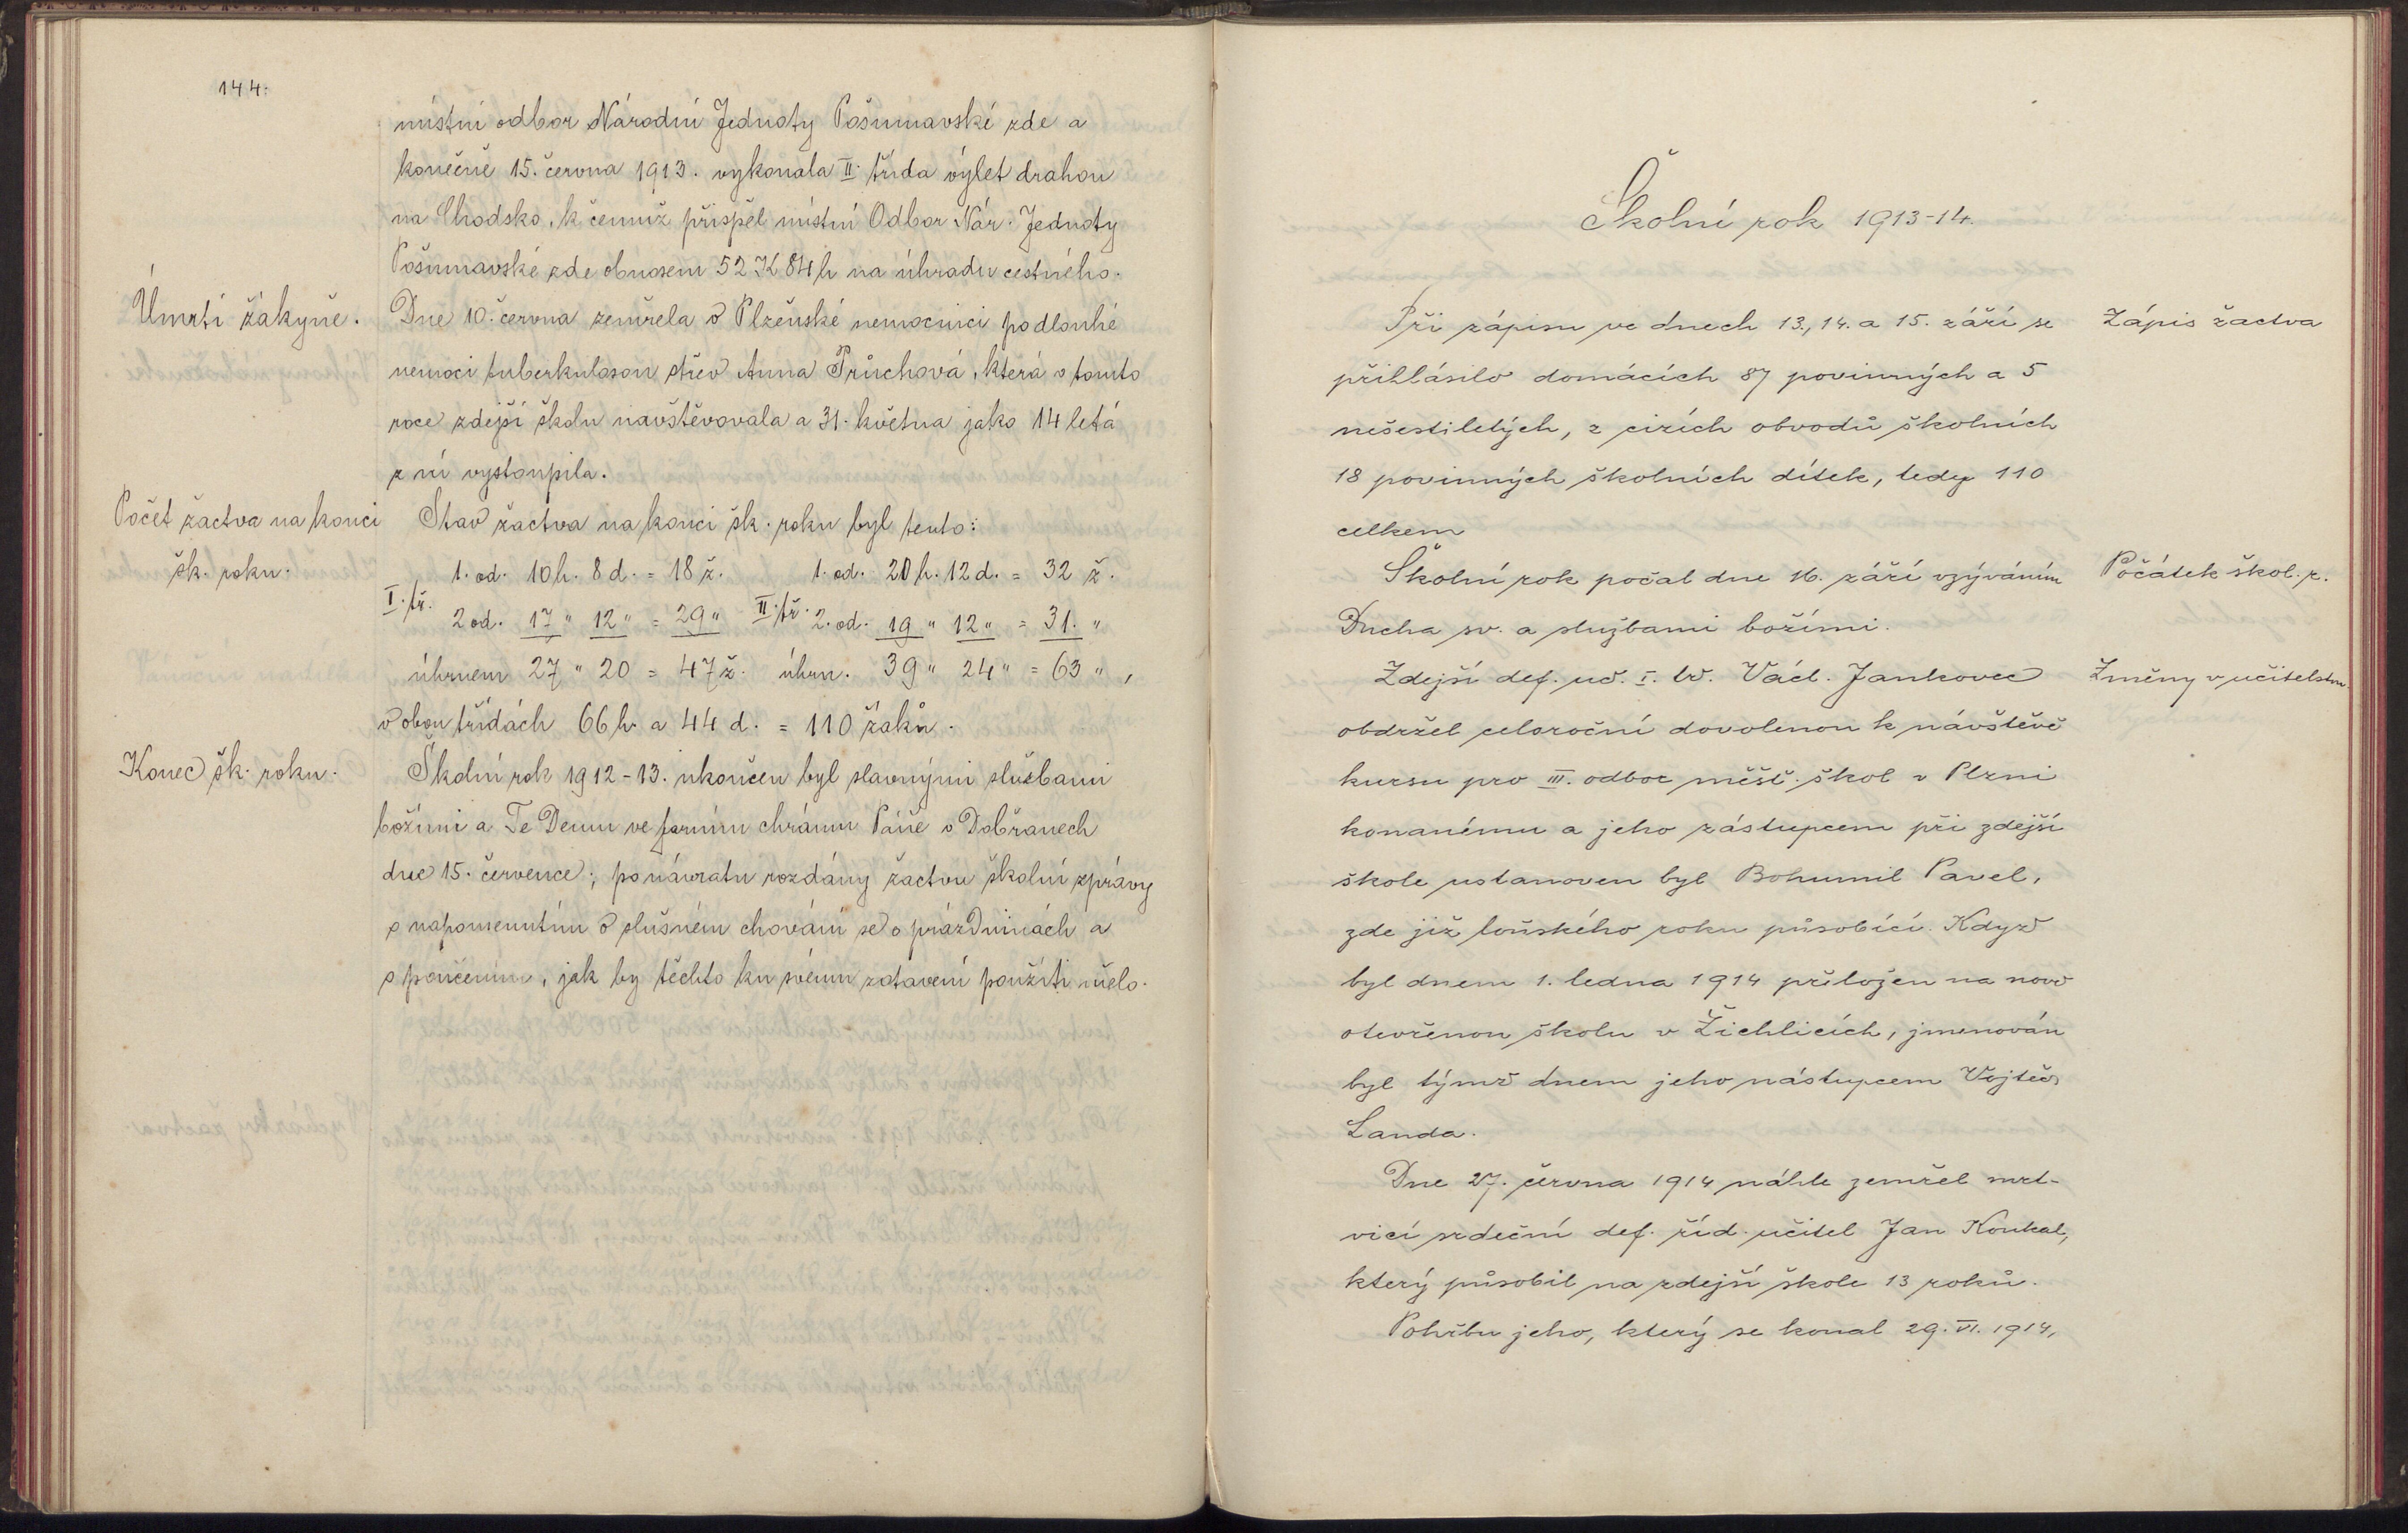 144.
místní odbor Národní Jednoty Pošumavské zde a
konečně 15. června 1913. vykonala II. třída výlet drahou
na Chodsko, k čemuž přispěl místní Odbor Nár. Jednoty
Pošumavské zde obnosem 52 K 84 h na úhradu cestného.
Úmrtí žákyně.
Dne 10. června zemřela v Plzeňské nemocnici po dlouhé
nemoci tuberkulosou střev Anna Průchová, která v tomto
roce zdejší školu navštěvovala a 31. května jako 14 letá
z ní vystoupila.
Počet žactva na konci
šk. roku.
Stav žactva na konci šk. roku byl tento:
1. od. 10 h. 8 d. = 18 ž. 1. od. 20 h. 12 d. = 32 ž.
I. tř. II. tř.
2 od. 17 " 12 " = 29 " 2. od. 19 " 12 " = 31. "
úhrnem 27 " 20 = 47 ž. úhrn. 39 " 24 " = 63 ",
v obou třídách 66 h a 44 d. = 110 žáků.
Konec šk. roku.
Školní rok 1912-13. ukončen byl slavnými službami
božími a Te Deum ve farním chrámu Páně v Dobřanech
dne 15. července; po návratu rozdány žactvu školní zprávy
s napomenutím o slušném chování se o prázdninách a
s poučením, jak by těchto ku svému zotavení použíti mělo.
Školní rok 1913-14.
Při zápisu ve dnech 13., 14. a 15. září se
Zápis žactva
přihlásilo domácích 87 povinných a 5
nešestiletých, z cizích obvodů školních
18 povinných školních dítek, tedy 110
celkem
Školní rok počal dne 16. září vzýváním
Počátek škol. r.
Ducha sv. a službami božími.
Zdejší def. uč. I. tř. Václ. Jankovec
Změny v učitelstvu
obdržel celoroční dovolenou k návštěvě
kursu pro III. odbor měšť. škol v Plzni
konanému a jeho zástupcem při zdejší
škole ustanoven byl Bohumil Pavel,
zde již loňského roku působící. Když
byl dnem 1. ledna 1914 přeložen na nově
otevřenou školu v Žichlicích, jmenován
byl týmž dnem jeho nástupcem Vojtěch
Landa.
Dne 27. června 1914 náhle zemřel mrt-
vicí srdeční def. říd. učitel Jan Koukal,
který působil na zdejší škole 13 roků.
Pohřbu jeho, který se konal 29. VI. 1914,